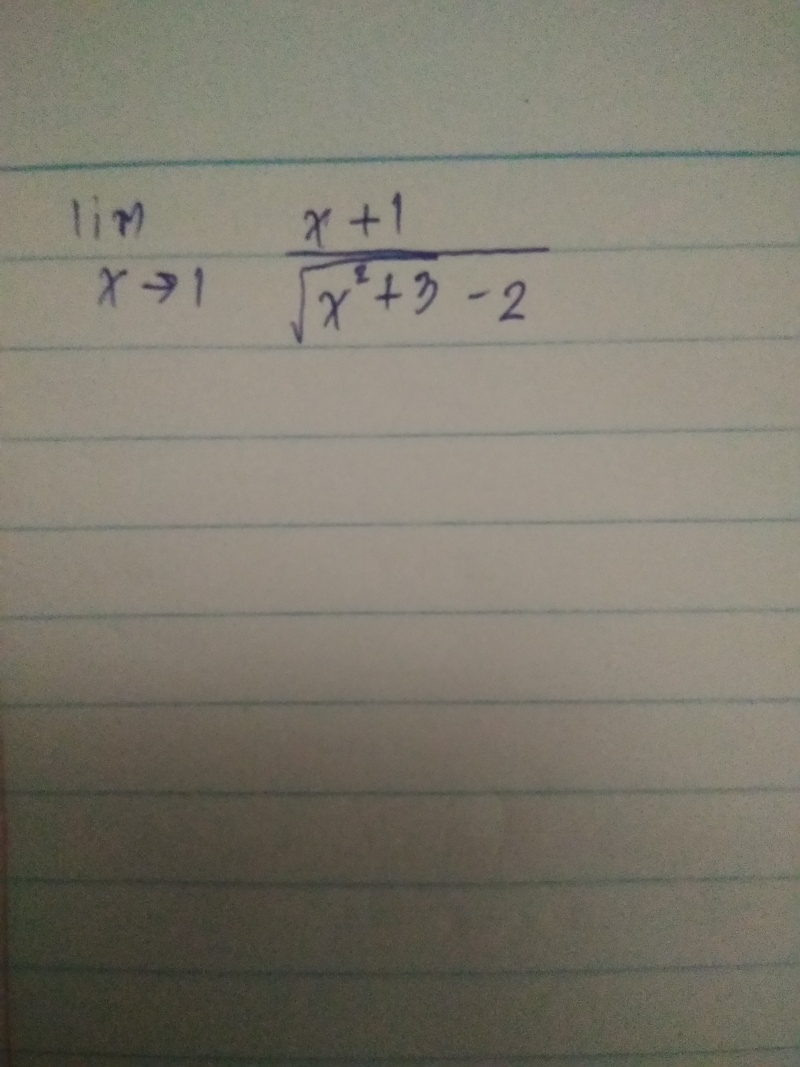 lim x + 1
x → 1 √x² + 3 - 2